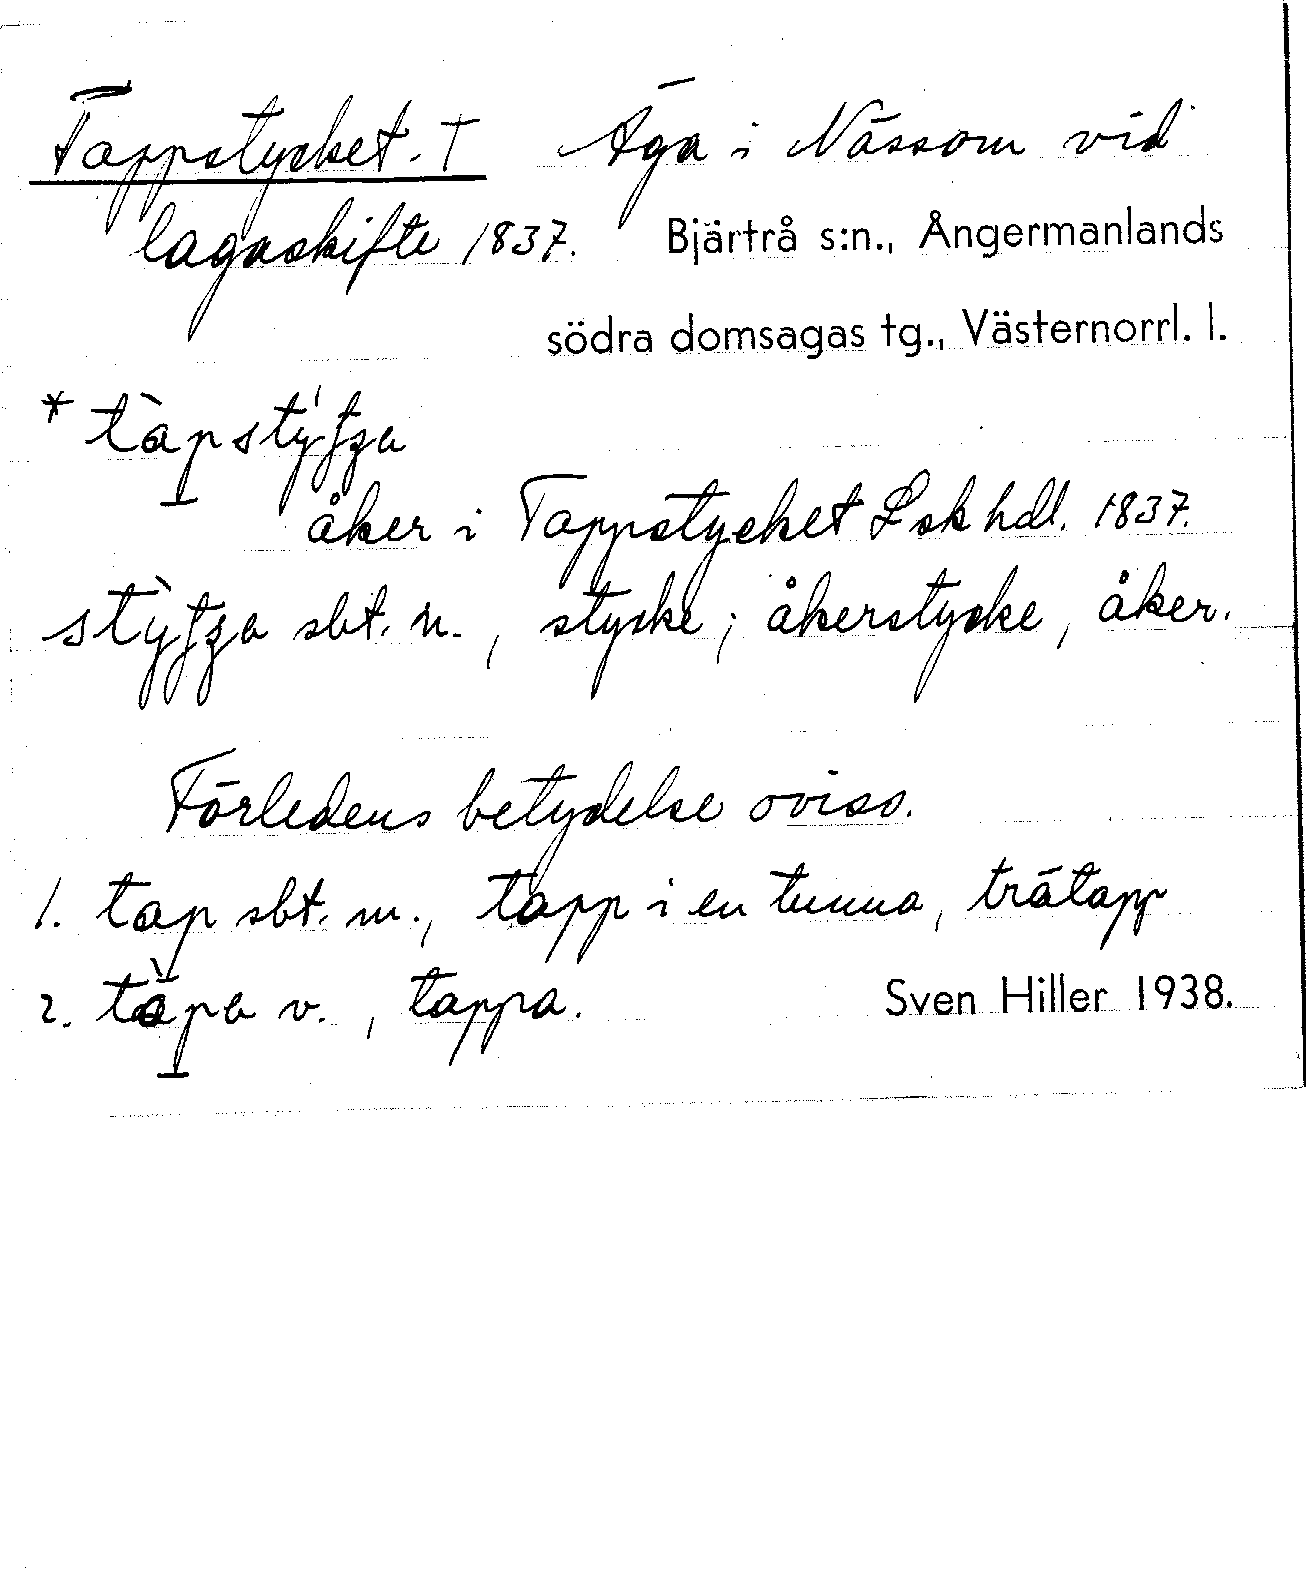 Tappstycket. † Äga i Nässom vid
lagaskifte 1837. Bjärtrå s:n., Ångermanlands
södra domsagas tg., Västernorrl. l.
*
åker i Tappstycket Lsk hdl. 1837.
sbt. n., stycke; åkerstycke, åker.
Förledens betydelse oviss.
1. tap sbt. m., tapp i en tunna, trätapp
2. tàpa v., tappa. Sven Hiller 1938.